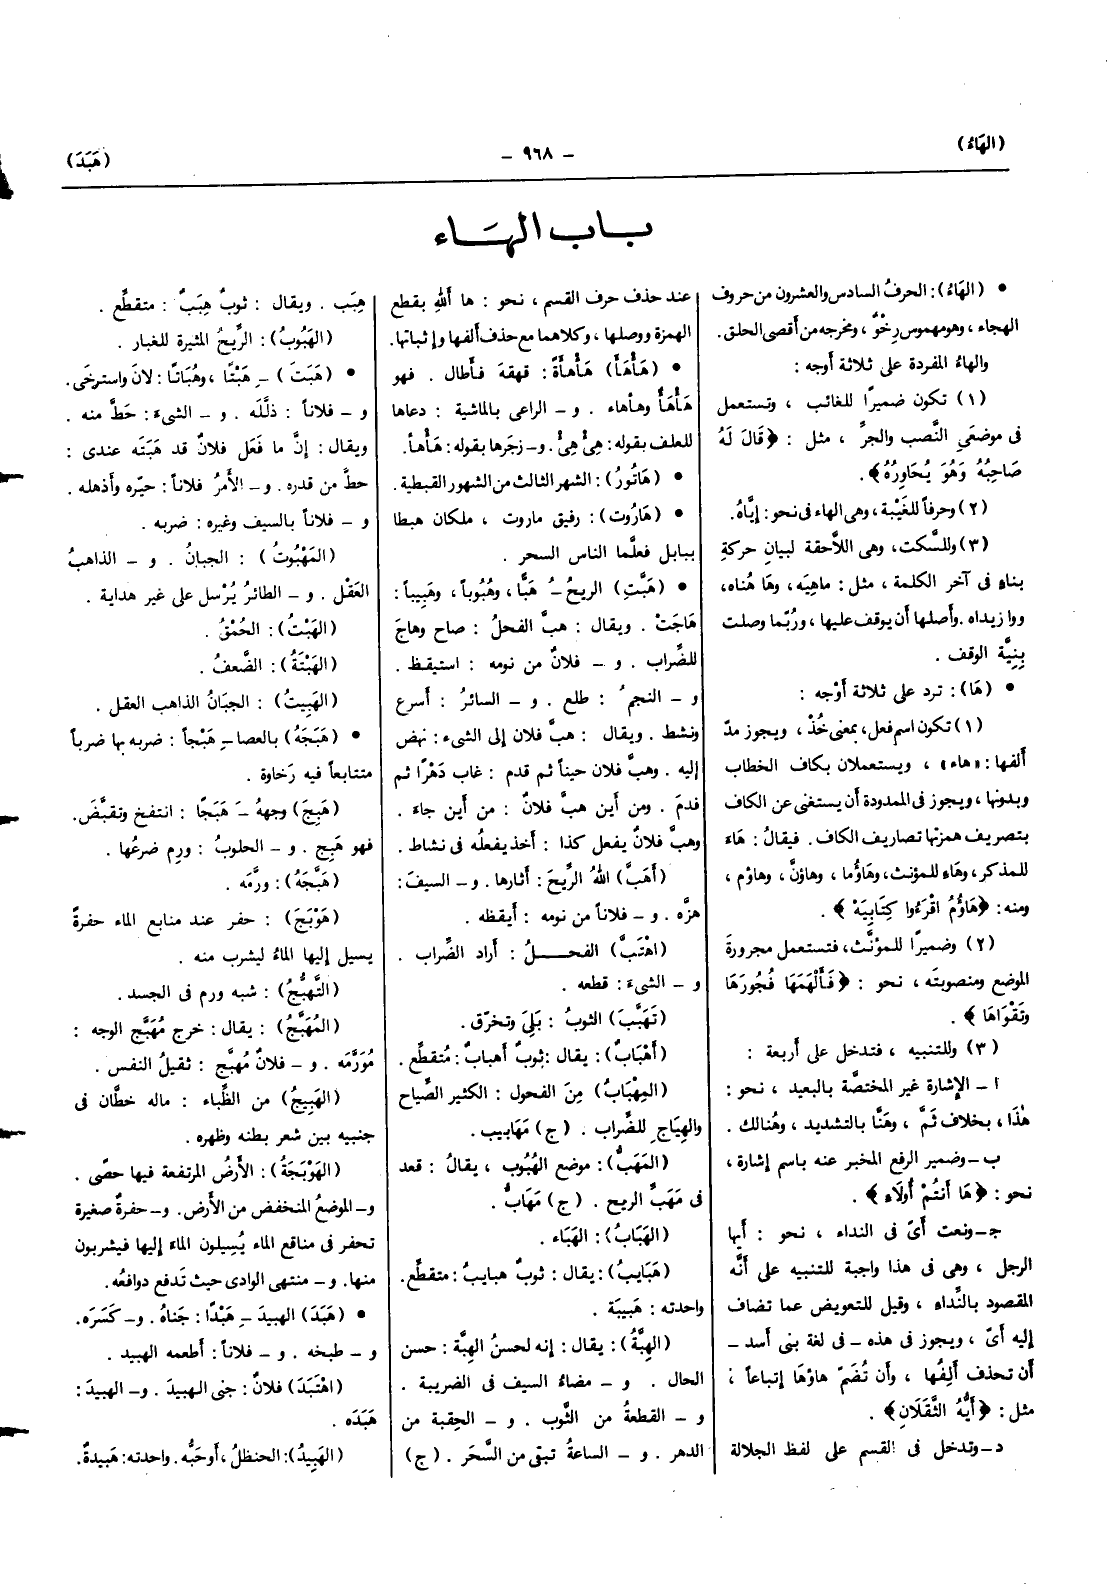 (الهَاءُ)
- ٩٦٨ -
(هَبَدَ)
بـاب الهَـاء
• (الهَاءُ): الحرفُ السادس والعشرون من حروف
الهجاء ، وهو مهموس رِخْوٌ ، ومخرجه من أقصى الحلق.
والهاءُ المفردة على ثلاثة أوجه :
(١) تكون ضميرًا للغائب ، وتستعمل
فى موضعَىِ النَّصب والجرِّ ، مثل : ﴿قَالَ لَهُ
صَاحِبُهُ وَهُوَ يُحَاوِرُهُ﴾.
(٢) وحرفاً للغَيْبة ، وهى الهاء فى نحو : إيَّاهُ.
(٣) وللسَّكت، وهى اللاَّحقة لبيانِ حركةِ
بناءٍ فى آخر الكلمة ، مثل : ماهِيَه، وهَا هُناه،
ووا زيداه. وأصلها أن يوقف عليها ، ورُبَّما وصلت
بِنِيَّة الوقف .
• (هَا): ترد على ثلاثة أَوْجه :
(١) تكون اسم فعل، بمعنى خُذْ ، ويجوز مدّ
ألفها : «هاء» ، ويستعملان بكاف الخطاب
وبدونها ، ويجوز فى الممدودة أن يستغنى عن الكاف
بتصريف همزتها تصاريف الكاف. فيقالُ : هَاءَ
للمذكر، وهَاءِ للمؤنث، وهَاؤُما ، وهاؤنَّ ، وهاؤم ،
ومنه: ﴿هَاؤُمُ اقْرَءُوا كِتَابِيَهْ﴾ .
(٢) وضميرًا للمؤنَّث، فتستعمل مجرورةَ
الموضع ومنصوبتَه ، نحو : ﴿فَأَلْهَمَهَا فُجُورَهَا
وَتَقْوَاهَا﴾ .
(٣) وللتنبيه ، فتدخل على أربعة :
ا - الإشارة غير المختصَّة بالبعيد ، نحو :
هٰذَا ، بخلاف ثَمَّ ، وهَنَّا بالتشديد ، وهُنالك .
ب - وضمير الرفع المخبر عنه باسم إشارة ،
نحو : ﴿هَا أَنتُمْ أُولَاءِ﴾ .
جـ - ونعت أىّ فى النداء ، نحو : أيها
الرجل ، وهى فى هذا واجبة للتنبيه على أَنَّه
المقصود بالنِّداء ، وقيل للتعويض عما تضاف
إليه أىّ ، ويجوز فى هذه - فى لغة بنى أسد -
أن تحذف ألِفُها ، وأن تُضَمّ هاؤها إتباعاً ؛
مثل : ﴿أَيُّهُ الثَّقَلَانِ﴾ .
د - وتدخل فى القسم على لفظ الجلالة
عند حذف حرف القسم ، نحو : ها اللهِ بقطع
الهمزة ووصلها ، وكلاهما مع حذف ألفها وإثباتها.
• (هَأْهَأَ) هَأْهَأَةً : قهقهَ فأطال . فهو
هَأْهَأٌ وهأهاء . و - الراعى بالماشية : دعاها
للعلف بقوله: هِئْ هِئْ. و - زجَرها بقوله: هَأْهأ.
• (هَاتُورُ): الشهر الثالث من الشهور القبطية.
• (هَارُوت): رفيق ماروت ، ملكان هبطا
ببابل فعلَّما الناس السحر .
• (هَبَّتِ) الريحُ ـُ هَبًّا، وهُبُوباً، وهَبِيباً :
هَاجَتْ . ويقال : هبَّ الفحلُ : صاح وهاجَ
للضِّراب . و - فلانٌ من نومه : استيقظ .
و - النجمُ : طلع . و - السائرُ : أسرع
ونشط . ويقال : هبَّ فلان إلى الشىء : نهض
إليه . وهبَّ فلان حيناً ثم قدم : غاب دَهْرًا ثم
قدمَ . ومن أين هبَّ فلانٌ : من أين جاء .
وهبَّ فلانٌ يفعل كذا : أخذ يفعلُه فى نشاط .
(أَهَبَّ) اللهُ الرِّيحَ : أثارها . و - السيفَ :
هزَّه . و - فلاناً من نومه : أيقظه .
(اهْتَبَّ) الفحـلُ : أراد الضِّراب .
و - الشىءَ : قطعه .
(تَهَبَّبَ) الثوبُ : بَلِىَ وتخرّق .
(أَهْبَابٌ): يقال : ثوبٌ أهبابٌ : مُتقطِّع .
(المِهْبَابُ) مِنَ الفحول : الكثير الصِّياح
والهِيَاج للضِّراب . (ج) مَهابيب .
(المَهَبُّ): موضع الهُبُوب ، يقالُ : قعد
فى مَهَبِّ الريح . (ج) مَهَابُّ .
(الهَبَابُ): الهَبَاء .
(هَبَايِبُ): يقال : ثوبٌ هبايبُ : متقطِّع .
واحدته : هَبِيبَة .
(الهِبَّةُ): يقال : إنه لحسنُ الهِبَّة : حسن
الحال . و - مضاءُ السيف فى الضريبة .
و - القطعةُ من الثَّوب . و - الحِقبة من
الدهر . و - الساعةُ تبقى من السَّحَر . (ج)
هِبَب . ويقال : ثوبٌ هِبَبٌ : متقطِّع .
(الهَبُوبُ): الرِّيحُ المثيرة للغبار .
• (هَبَتَ) ـِ هَبْتًا ، وهُبَاتًا : لانَ واسترخَى.
و - فلاناً : ذلَّلَه . و - الشىءَ : حَطَّ منه .
ويقال : إنَّ ما فَعَل فلانٌ قد هَبَتَه عندى :
حطَّ من قدره . و - الأمرُ فلاناً : حيّره وأذهله .
و - فلاناً بالسيف وغيره : ضربه .
(المَهْبُوتُ) : الجبانُ . و - الذاهبُ
العَقْل . و - الطائرُ يُرْسل على غير هداية .
(الهَبْتُ): الحُمْقُ .
(الهَبْتَةُ): الضَّعفُ .
(الهَبِيتُ) : الجبَانُ الذاهب العقل .
• (هَبَجَهُ) بالعصا ـِ هَبْجاً : ضربه بها ضرباً
متتابعاً فيه رَخاوة .
(هَبِجَ) وجههُ ـَ هَبَجًا : انتفخ وتقبَّضَ.
فهو هَبِج . و - الحلوبُ : ورِم ضرعُها .
(هَبَّجَهُ) : ورَّمه .
(هَوْبَجَ) : حفر عند منابع الماء حفرةً
يسيل إليها الماءُ ليشرب منه .
(التَّهَبُّجُ) : شبه ورم فى الجسد .
(المُهَبَّجُ) : يقال : خرج مُهَبَّج الوجه :
مُوَرَّمَه . و - فلانٌ مُهبَّج : ثقيلُ النفس .
(الهَبِيجُ) من الظِّباء : ماله خطَّان فى
جنبيه بين شعر بطنه وظهره .
(الهَوْبَجَةُ) : الأرضُ المرتفعة فيها حصًى .
و - الموضعُ المنخفض من الأرض. و - حفرةٌ صغيرة
تحفر فى مناقع الماء يُسِيلون الماءَ إليها فيشربون
منها. و - منتهى الوادى حيث تَدفع دوافعُه .
• (هَبَدَ) الهبيدَ ـِ هَبْدًا : جَناهُ . و - كَسَرَه.
و - طبخه . و - فلاناً : أطعمه الهبيد .
(اهْتَبَدَ) فلانٌ : جنى الهبيدَ . و - الهبيدَ :
هَبَدَه .
(الهَبِيدُ): الحنظلُ ، أوحَبُّه. واحدته : هَبيدةٌ.